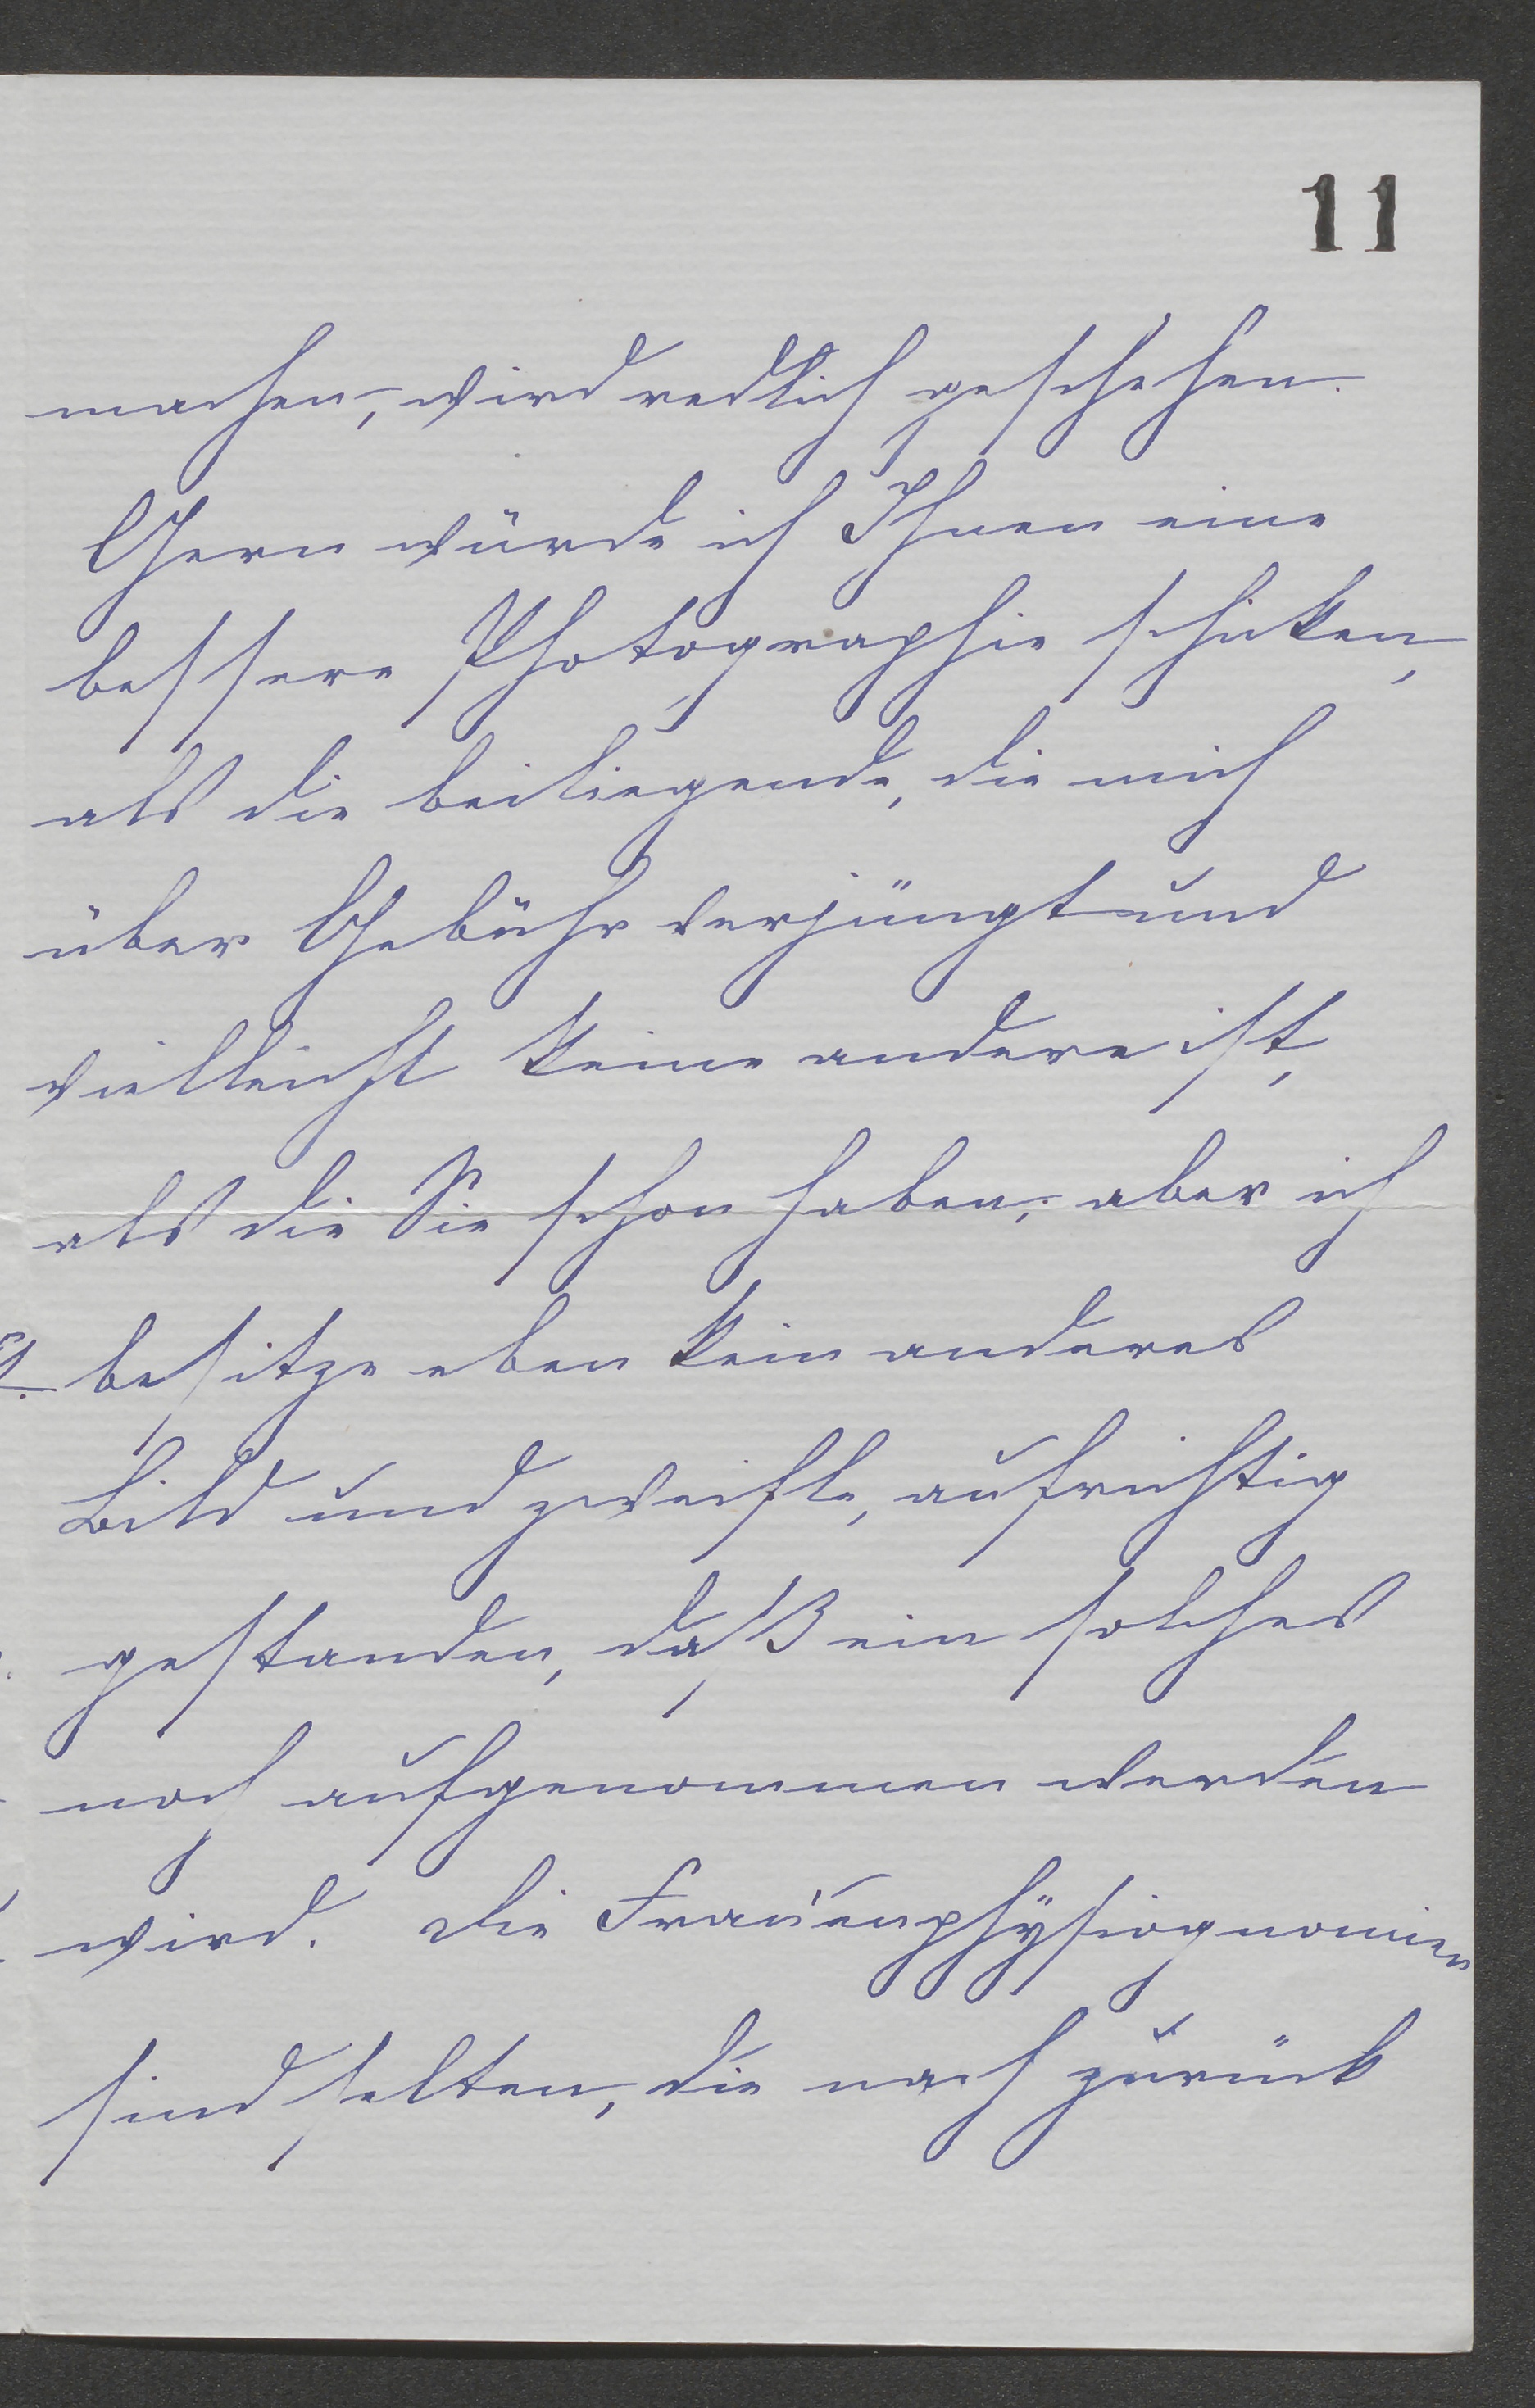 11
machen, wird redlich geschehen.
Gern würde ich Ihnen eine
bessere Photographie schicken,
als die beiliegende, die mich
über Gebühr verjüngt und
vielleicht keine andere ist,
als die Sie schon haben; aber ich
besitze eben kein anderes
Bild und zweifle, aufrichtig
gestanden, daß ein solches
noch aufgenommen werden
wird. Die Frauenphysiognomien
sind selten, die nach zurück